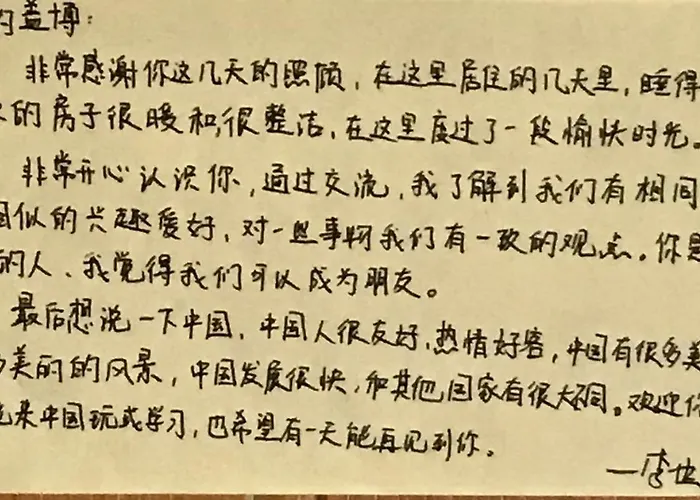 的盖博：
非常感谢你这几天的照顾，在这里居住的几天里，睡得
的房子很暖和，很整洁，在这里度过了一段愉快时光。
非常开心认识你，通过交流，我了解到我们有相同
相似的兴趣爱好，对一些事物我们有一致的观点。你是
的人、我觉得我们可以成为朋友。
最后想说一下中国，中国人很友好，热情好客，中国有很多美
多美丽的风景，中国发展很快，和其他国家有很大不同。欢迎你
来中国玩或学习，也希望有一天能再见到你。
—李